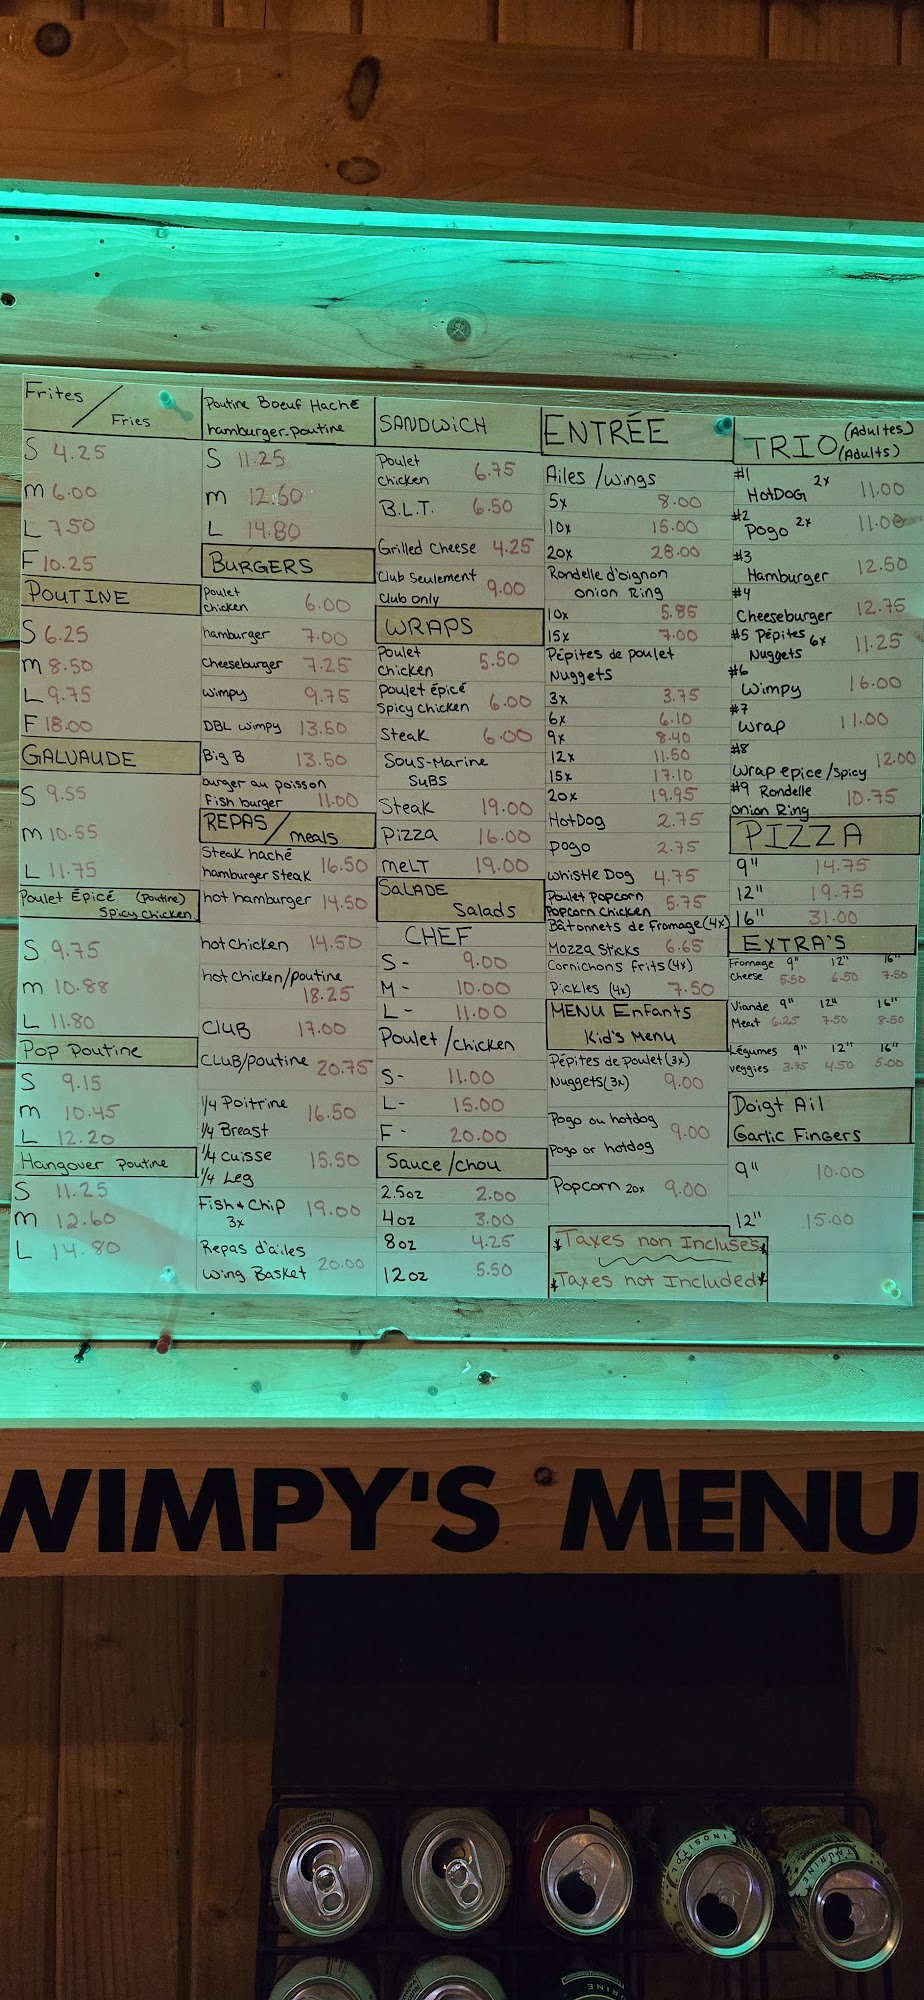 Frites / Fries
S 4.25
m 6.00
L 7.50
F 10.25
POUTINE
S 6.25
m 8.50
L 9.75
F 18.00
GALVAUDE
S 9.55
m 10.55
L 11.75
Poulet Épicé (Poutine)
Spicy chicken
S 9.75
m 10.88
L 11.80
Pop Poutine
S 9.15
m 10.45
L 12.20
Hangover Poutine
S 11.25
m 12.60
L 14.80
Poutine Boeuf Haché
hamburger-poutine
S 11.25
m 12.60
L 14.80
BURGERS
Poulet
chicken 6.00
hamburger 7.00
cheeseburger 7.25
wimpy 9.75
DBL wimpy 13.50
Big B 13.50
burger au poisson
Fish burger 11.00
REPAS / meals
Steak haché
hamburger steak 16.50
hot hamburger 14.50
hot chicken 14.50
hot chicken/poutine
18.25
CLUB 17.00
CLUB/poutine 20.75
1/4 Poitrine
1/4 Breast 16.50
1/4 cuisse
1/4 Leg 15.50
Fish & Chip 19.00
3x
Repas d'ailes
wing Basket 20.00
SANDWICH
Poulet
chicken 6.75
B.L.T. 6.50
Grilled Cheese 4.25
Club Seulement
Club only 9.00
WRAPS
Poulet
chicken 5.50
poulet épicé
Spicy chicken 6.00
Steak 6.00
SOUS-Marine
SUBS
Steak 19.00
Pizza 16.00
meLT 19.00
SALADE
Salads
CHEF
S- 9.00
M- 10.00
L- 11.00
Poulet/chicken
S- 11.00
L- 15.00
F- 20.00
Sauce/chou
2.5oz 2.00
4oz 3.00
8oz 4.25
12oz 5.50
ENTRÉE
Ailes/wings
5x 8.00
10x 15.00
20x 28.00
Rondelle d'oignon
onion Ring
10x 5.85
15x 7.00
Pépites de poulet
Nuggets
3x 3.75
6x 6.10
9x 8.40
12x 11.50
15x 17.10
20x 19.95
HotDog 2.75
pogo 2.75
whistle Dog 4.75
Poulet Popcorn
Popcorn Chicken 5.75
Bâtonnets de Fromage (4x)
Mozza Sticks 6.65
Cornichons Frits (4x)
Pickles (4x) 7.50
MENU Enfants
Kid's Menu
Pépites de poulet (3x)
Nuggets (3x) 9.00
Pogo ou hotdog
Pogo or hotdog 9.00
Popcorn 20x 9.00
*Taxes non Incluses*
*Taxes not Included*
TRIO (Adultes)
(Adults)
#1
HotDOG 2x 11.00
#2
Pogo 2x 11.00
#3
Hamburger 12.50
#4
Cheeseburger 12.75
#5 Pépites 6x
Nuggets 11.25
#6
Wimpy 16.00
#7
wrap 11.00
#8
wrap epice/spicy 12.00
#9 Rondelle
onion Ring 10.75
PIZZA
9" 14.75
12" 19.75
16" 31.00
EXTRA'S
Fromage 9" 12" 16"
cheese 5.50 6.50 7.50
Viande 9" 12" 16"
Meat 6.25 7.50 8.50
Légumes 9" 12" 16"
veggies 3.75 4.50 5.00
Doigt Ail
Garlic Fingers
9" 10.00
12" 15.00
WIMPY'S MENU
INOSITOL
TAURINE